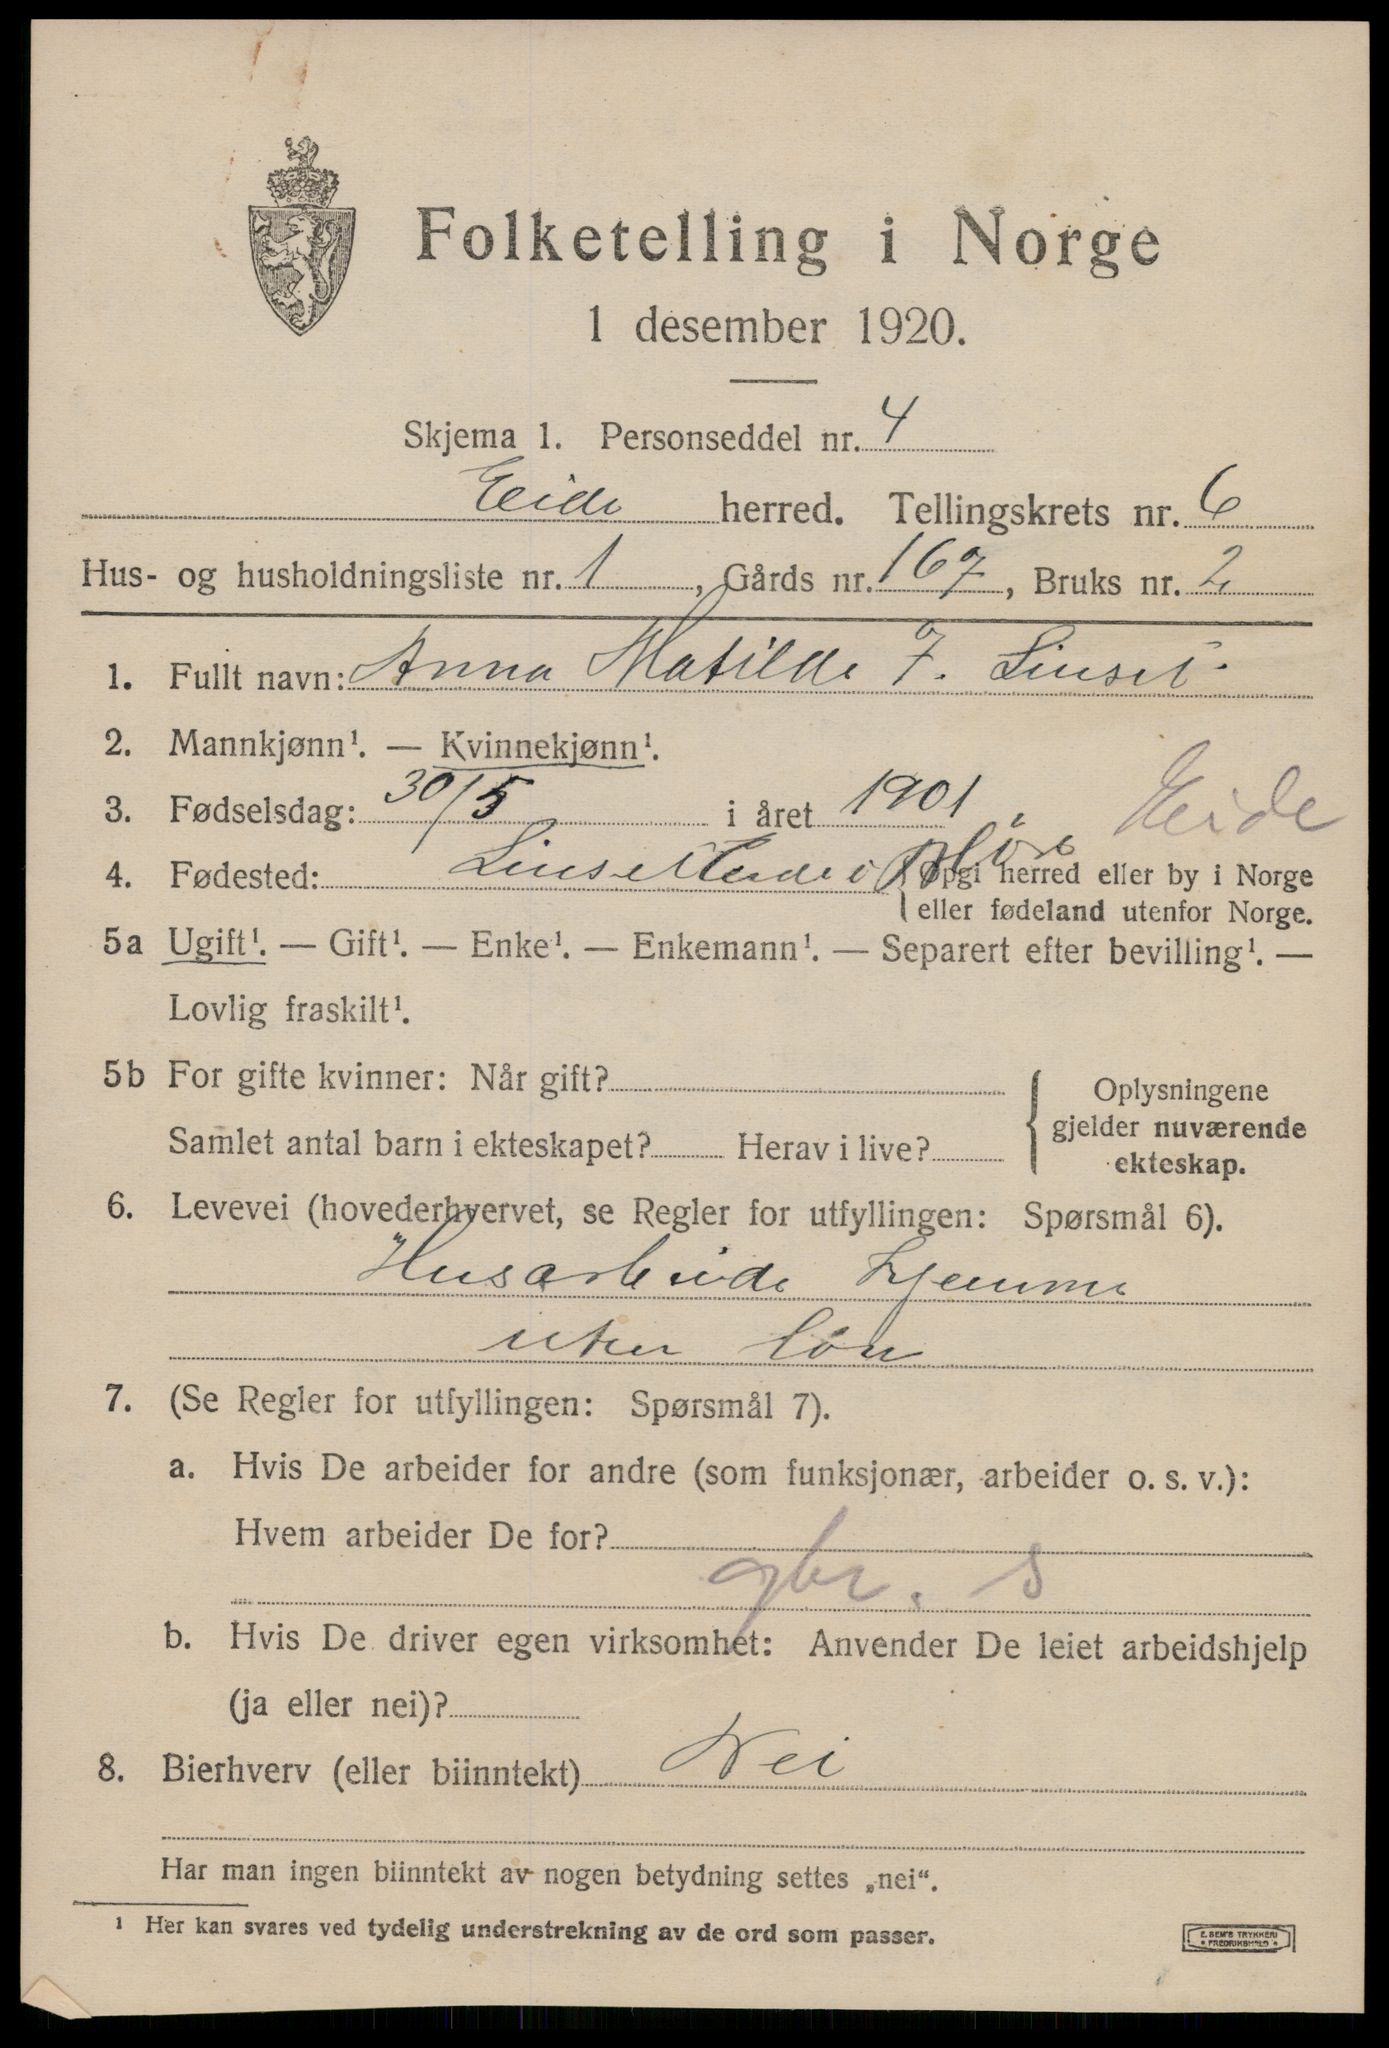 Folketelling i Norge
1 desember 1920.
Skjema 1. Personseddel nr. 4
Eide herred. Tellingskrets nr. 6
Hus- og husholdningsliste nr. 1, Gårds nr. 167, Bruks nr. 2
1. Fullt navn: Anna Matilde F. Linset
2. Mannkjønn¹. — Kvinnekjønn¹.
3. Fødselsdag: 30/5 i året 1901
Eide
4. Fødested: Linset Eide i Møre {Opgi herred eller by i Norge
eller fødeland utenfor Norge.
5a Ugift¹. — Gift¹. — Enke¹. — Enkemann¹. — Separert efter bevilling¹. —
Lovlig fraskilt¹.
5b For gifte kvinner: Når gift? Oplysningene
gjelder nuværende
Samlet antal barn i ekteskapet? Herav i live? ekteskap.
6. Levevei (hovederhvervet, se Regler for utfyllingen: Spørsmål 6).
Husarbeide hjemme
uten løn
7. (Se Regler for utfyllingen: Spørsmål 7).
a. Hvis De arbeider for andre (som funksjonær, arbeider o. s. v.):
Hvem arbeider De for?
gbr. s
b. Hvis De driver egen virksomhet: Anvender De leiet arbeidshjelp
(ja eller nei)?
8. Bierhverv (eller biinntekt) Nei
Har man ingen biinntekt av nogen betydning settes „nei“.
¹ Her kan svares ved tydelig understrekning av de ord som passer.
E. SEM'S TRYKKERI
* FREDRIKSHALD *